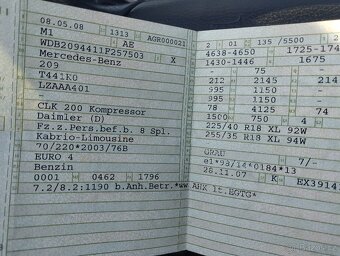 08.05.08 1313 AGR000021
M1 AE
WDB2094411F257503 X
Mercedes-Benz
209
T441K0
LZAAA401
CLK 200 Kompressor
Daimler (D)
Fz.z.Pers.bef.b. 8 Spl.
Kabrio-Limousine
70/220*2003/76B
EURO 4
Benzin
0001 0462 1796
7.2/8.2:1190 b.Anh.Betr.*ww.AHK lt.EGTG*
2 01 135 /5500
4638-4650 1725-174
1430-1446 1675
- 75 -
212 2145 214
995 1150 -
995 1150 -
78 4125
1500 750 4
225/40 R18 XL 92W
255/35 R18 XL 94W
-
GRAU 7/-
e1*98/14*0184*13
28.11.07 K EX39141